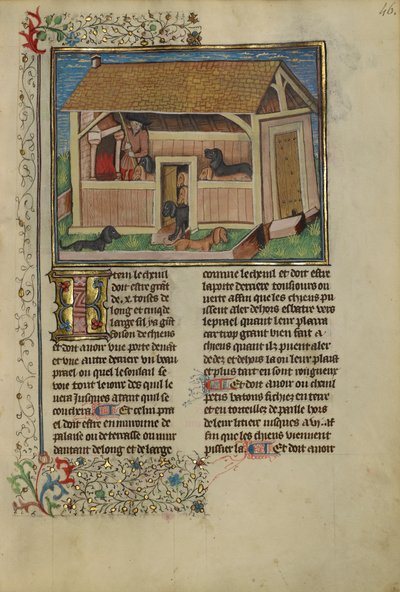 46.
Item le chenil
doit estre grāt
de .x. toises de
long et cinq de
large sil y a grāt
foison de chiens
et doit auoir vne porte deuāt
et vne autre derriere vn beau
prael ou quel le souleil se
voie tout le iour des quil le
uera jusques a tant quil se
couchera Et celui pra
el doit estre enuironne de
palais ou de terrasse ou mur
dautant de long et de large
comme le chenil et doit estre
la porte derriere tousiours ou
uerte affin que les chiens pu
issent aler dehors esbatre vers
le prael quant leur plaira
car trop grant bien fait a
chiens quant ilz puent aler
dedez et dehors la ou leur plaist
et plus tart en sont rongneux
Et doit auoir ou chenil
petis batons fichez en terre
et entorteillez de paille hors
de leur litiere jusques a .vj. af
fin que les chiens viennent
pissier la Et doit auoir